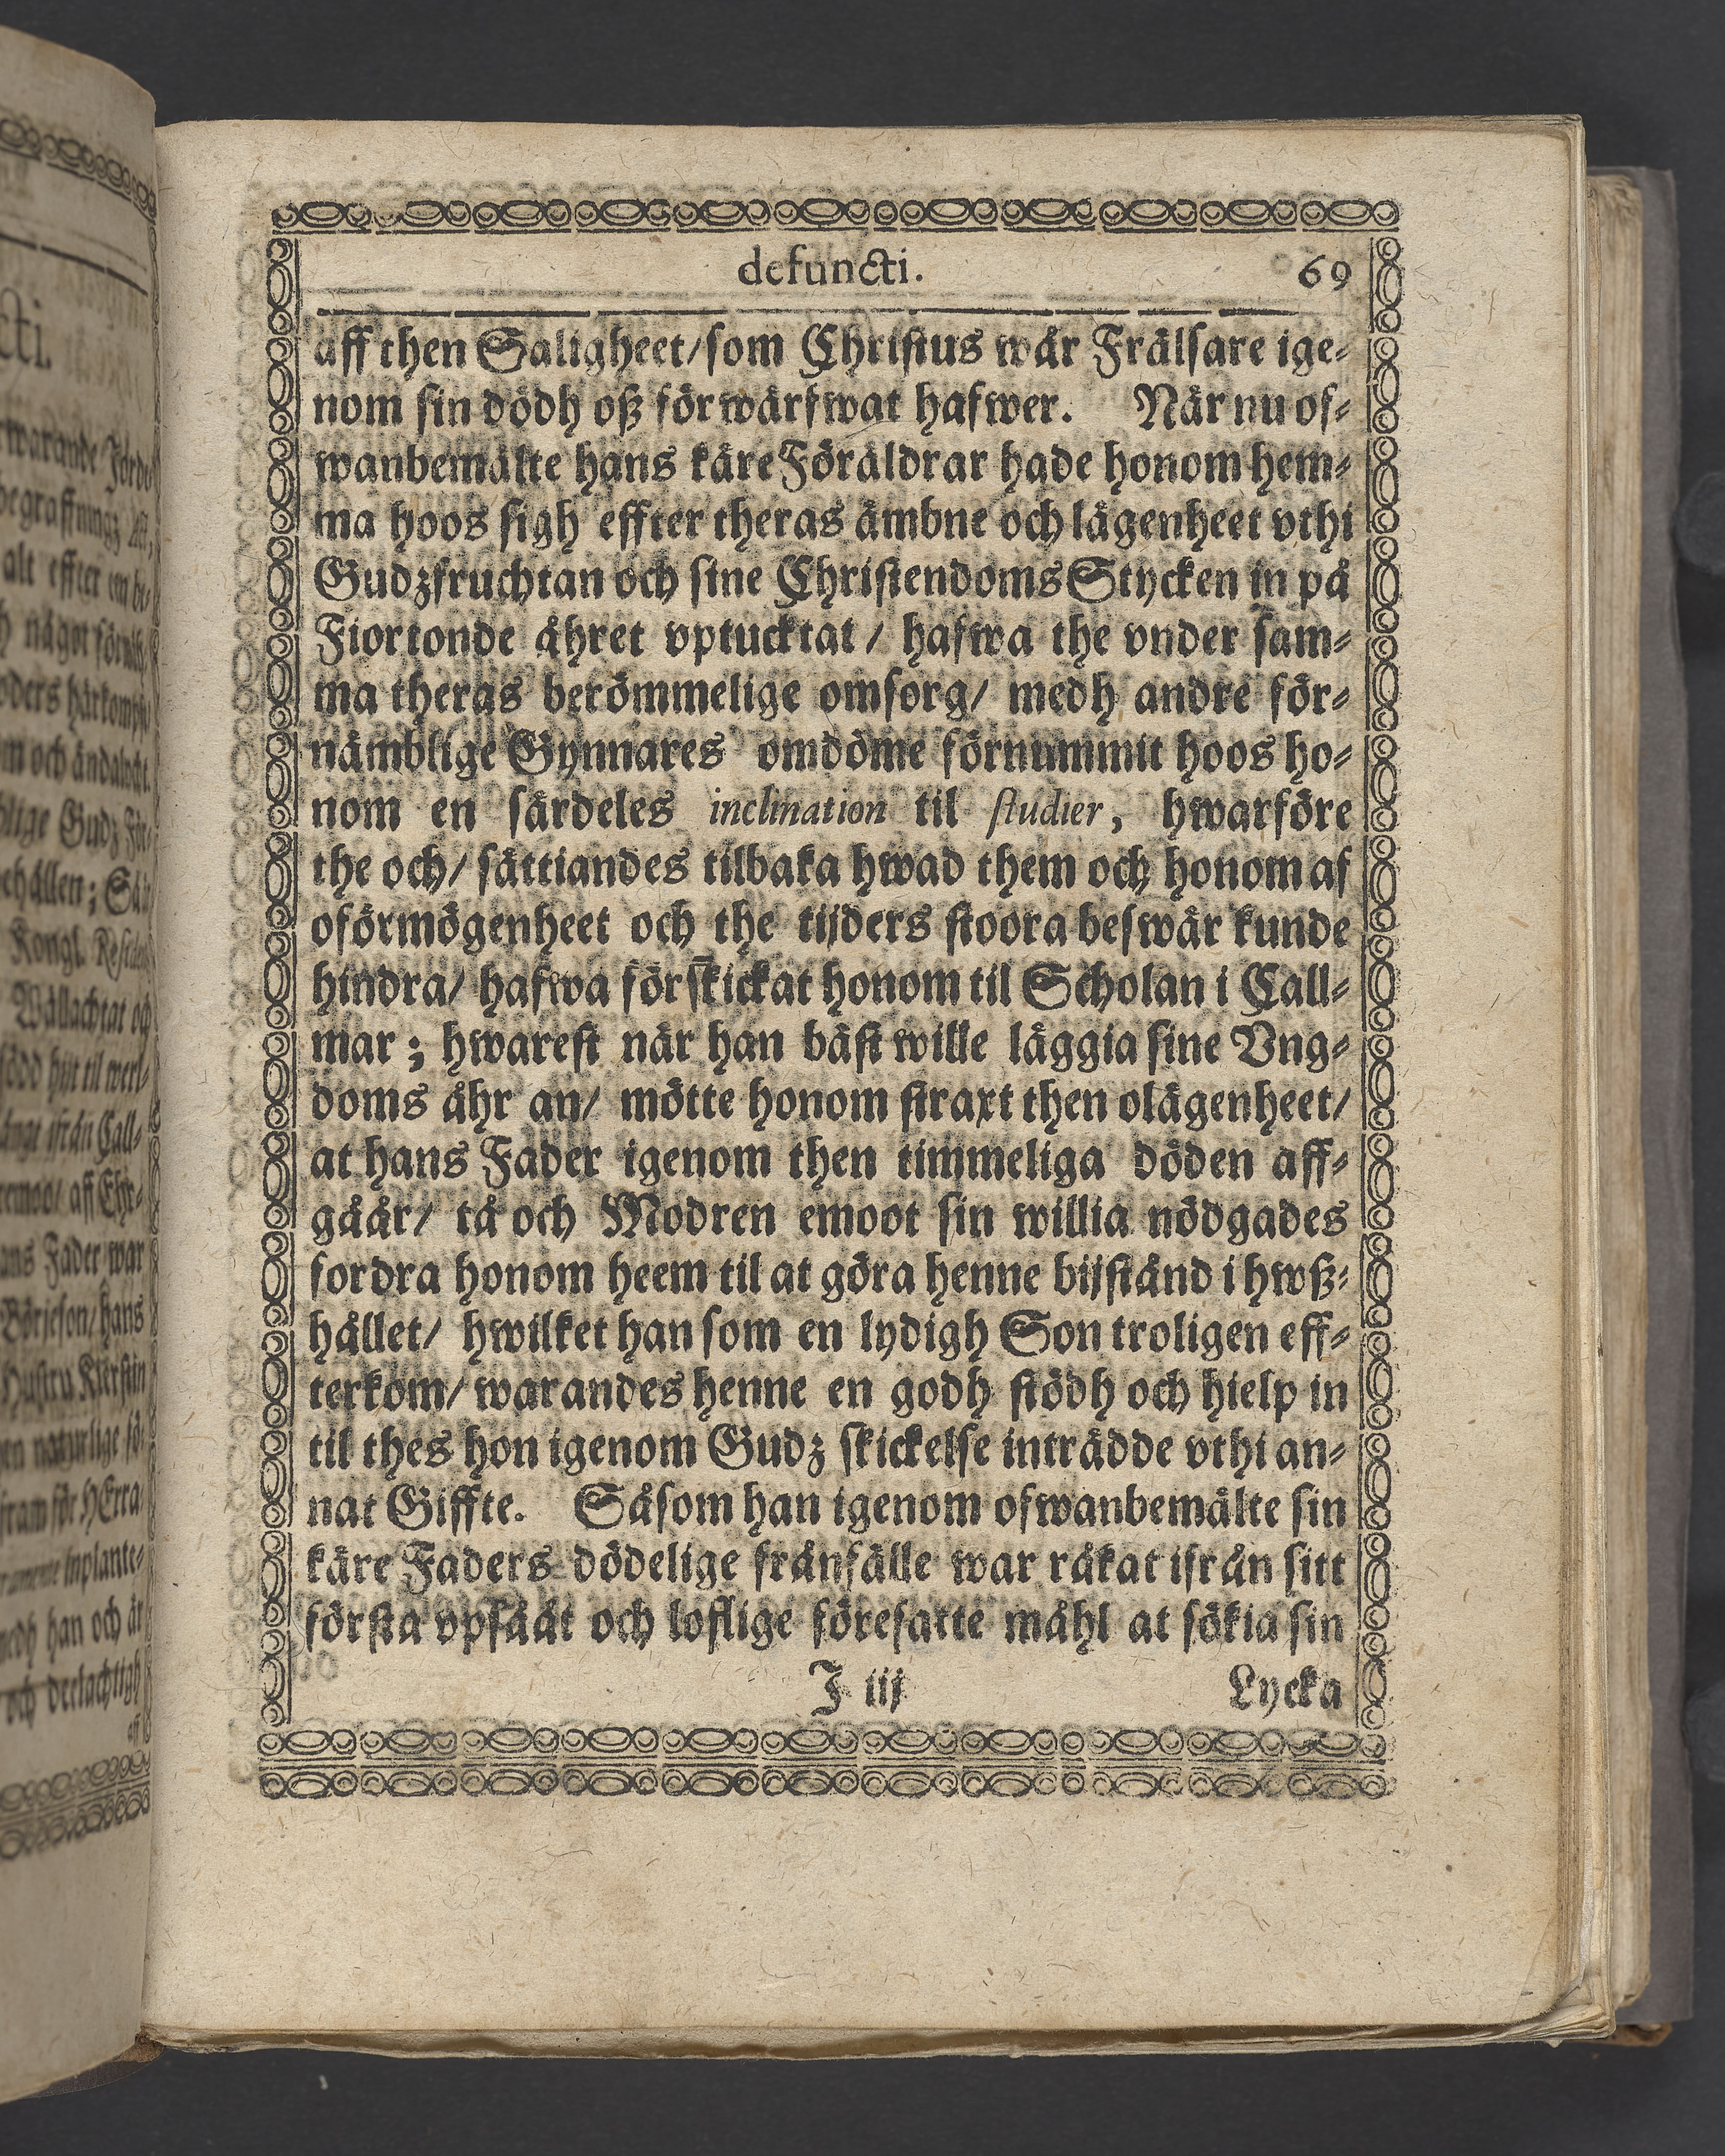 defuncti. 69
aff then Saligheet/som Christus wår Frälsare ige-
nom sin dödh oß förwärfwat hafwer. När nu of-
wanbemälte hans käre Föräldrar hade honom hem-
ma hoos sigh effter theras ämbne och lägenheet vthi
Gudzfruchtan och sine Christendoms Stycken in på
Fiortonde åhret vptucktat/ hafwa the vnder sam-
ma theras berömmelige omsorg/ medh andre för-
nämblige Gynnares omdöme förnummit hoos ho-
nom en särdeles inclination til studier, hwarföre
the och/ sättiandes tilbaka hwad them och honom af
oförmögenheet och the tijders stoora beswär kunde
hindra/ hafwa förskickat honom til Scholan i Call-
mar; hwarest när han bäst wille läggia sine Vng-
doms åhr an/ mötte honom straxt then olägenheet/
at hans Fader igenom then timmeliga döden aff-
gåår/ tå och Modren emoot sin willia nödgades
fordra honom heem til at göra henne bijstånd i hwß-
hållet/ hwilket han som en lydigh Son troligen eff-
terkom/ warandes henne en godh stödh och hielp in
til thes hon igenom Gudz skickelse inträdde vthi an-
nat Giffte. Såsom han igenom ofwanbemälte sin
käre Faders dödelige frånfälle war råkat ifrån sitt
första vpsååt och loflige föresatte måhl at sökia sin
J iij Lycka